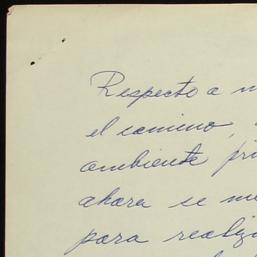 Respecto a m
el camino,
ambiente pri
ahora se me
para realiz